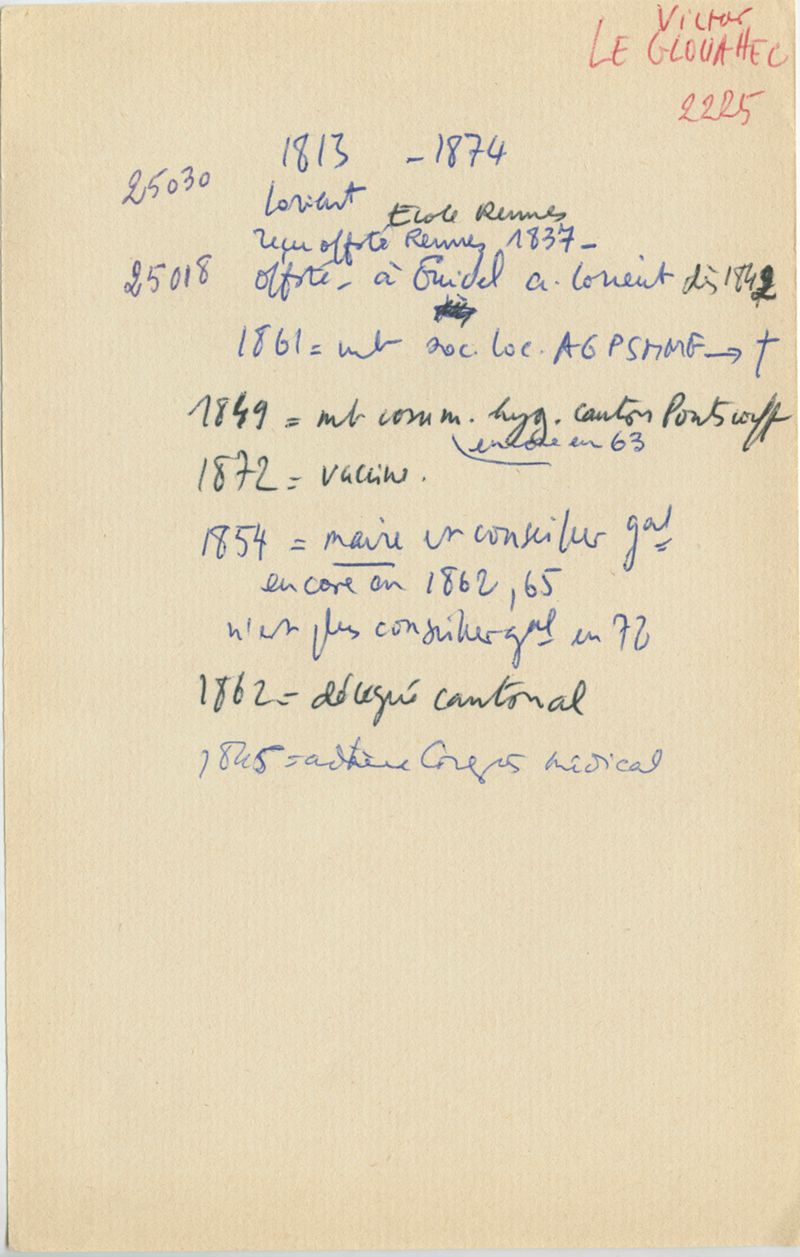 Victor
LE GLOUAHEC
2225
1813 - 1874
25030
Lorient
Ecole Rennes
reçu offsté Rennes 1837 -
25018 offsté - à Guidel a. Lorient dès 1842
1861 = mb soc. loc. AGPSMMF → †
1849 = mb comm. hyg. canton Pontscorff
encore en 63
1872 = vaccine.
1854 = maire et conseiller gal
encore en 1862, 65
n'est plus conseiller gal en 72
1862 = délégué cantonal
1845 = adhère Congrès médical